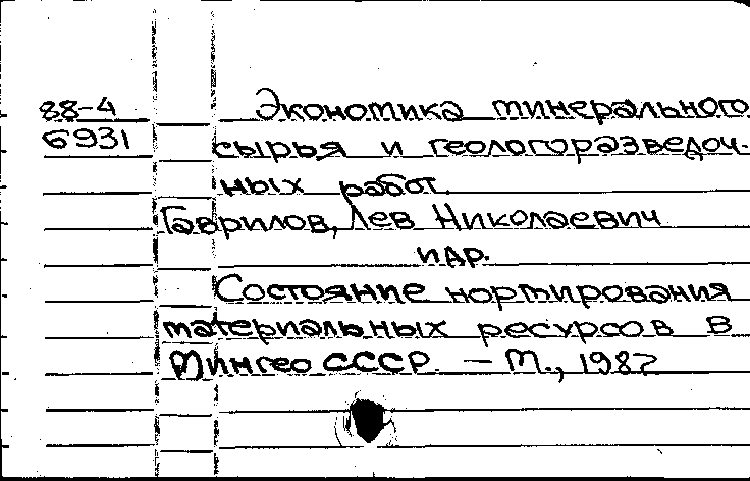 88-4 Экономика минерального
6931 сырья и геологоразведоч-
ных работ.
Гаврилов, Лев Николаевич
и др.
Состояние нормирования
материальных ресурсов в
Мингео СССР. – М., 1987